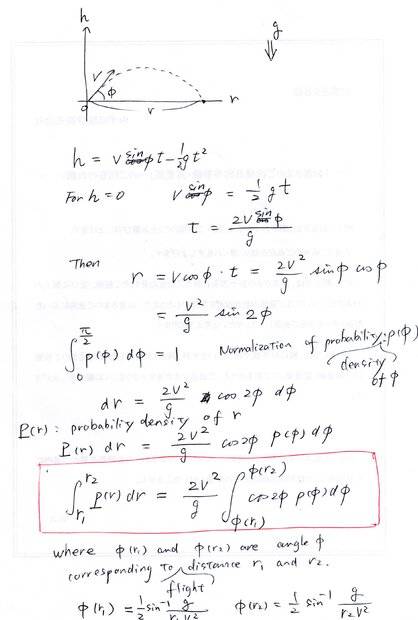 h
g
v
φ
0
r
r
h = v sin φ t − 1/2 g t²
For h = 0   v sin φ = 1/2 g t
t = 2v sin φ / g
Then
r = v cos φ · t = 2v²/g sin φ cos φ
= v²/g sin 2φ
∫₀^{π/2} p(φ) dφ = 1   Normalization of probability p(φ)
density
of φ
dr = 2v²/g cos 2φ dφ
P(r) : probability density of r
P(r) dr = 2v²/g cos 2φ p(φ) dφ
∫_{r₁}^{r₂} P(r) dr = 2v²/g ∫_{φ(r₁)}^{φ(r₂)} cos 2φ p(φ) dφ
where φ(r₁) and φ(r₂) are angle φ
corresponding to distance r₁ and r₂.
flight
φ(r₁) = 1/2 sin⁻¹ g/r₁v²   φ(r₂) = 1/2 sin⁻¹ g/r₂v²